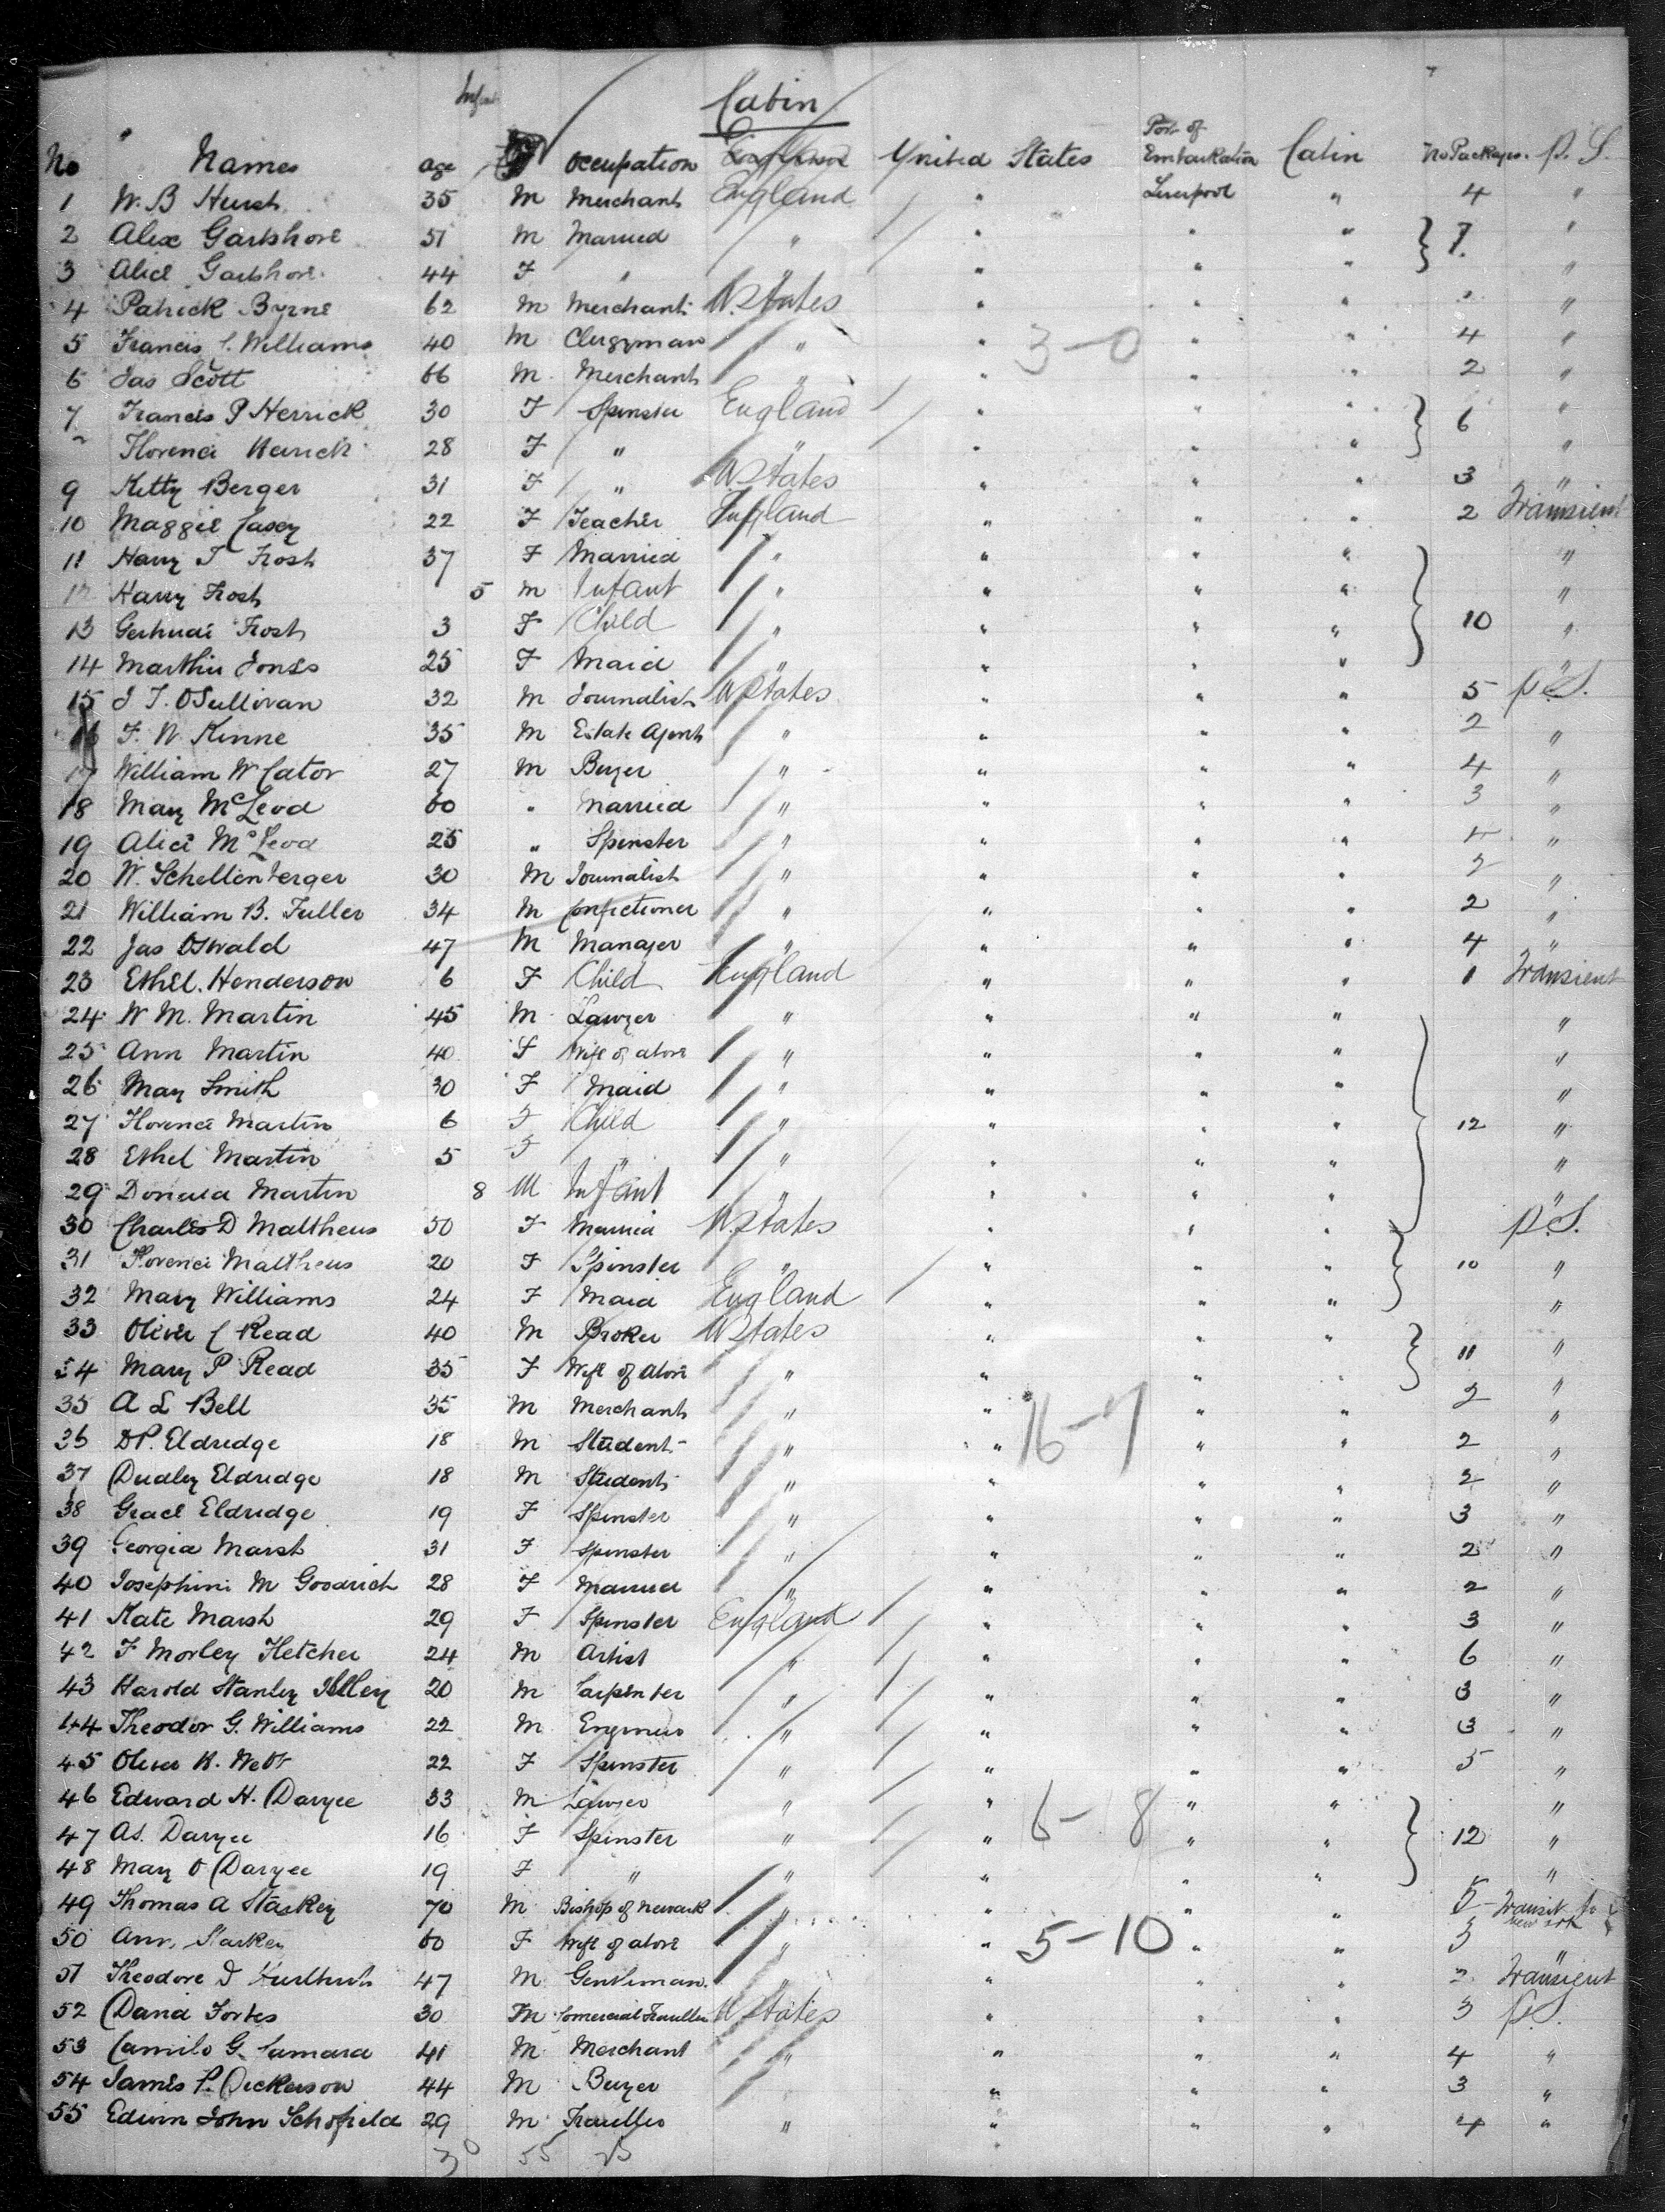 Cabin
No Names age F Occupation England United States Port of Embarkation Cabin No Packages. P. S.
1 W. B 35 M Merchant England " Liverpool " 4 "
2 Alex Gartshore 51 M Married " " " " } 7. "
3 Alice Gartshore 44 F " " " " "
4 Patrick Byrne 62 M Merchant U. States " " " " "
5 Francis Williams 40 M Clergyman " " 3-0 " " 4 "
6 Jas Scott 66 M Merchant " " " " 2 "
7 Francis P Herrick 30 F Spinster England " " " } 6 "
Florence Herrick 28 F " " " " " "
9 Kitty Berger 31 F " U States " " " 3 "
10 Maggie Casey 22 F Teacher England " " " 2 Transient
11 Harry T Frost 37 F Married " " " " "
12 Harry Frost 5 M Infant " " " " "
13 Gertrude Frost 3 F Child " " " " } 10 "
14 Jones 25 F Maid " " " " "
15 J T. OSullivan 32 M Journalist U States " " " 5 P. S.
16 F. W Kinne 35 M Estate Agent " " " " 2 "
17 William W Cator 27 M Buyer " " " " 4 "
18 Mary McLeod 60 " Married " " " " 3 "
19 Alice McLeod 25 " Spinster " " " " "
20 W. Schellenberger 30 M Journalist " " " " 2 "
21 William B. Fuller 34 M Confectioner " " " " 2 "
22 Jas Oswald 47 M Manager " " " " 4 "
23 Ethel. Henderson 6 F Child England " " " 1 Transient
24 W M. Martin 45 M Lawyer " " " " "
25 Ann Martin 40 F Wife of above " " " " "
26 May Smith 30 F Maid " " " " "
27 Florence Martin 6 F Child " " " " } 12 "
28 Ethel Martin 5 F " " " " " "
29 Donald Martin 8 M Infant " " " " "
30 Charles D Matthews 50 F Married U. States " " " P. S.
31 Florence Matthews 20 F Spinster " " " " } 10 "
32 Mary Williams 24 F Maid England " " " "
33 Oliver C Read 40 M Broker U States " " " } 11 "
34 Mary P Read 35 F Wife of above " " " " "
35 A L Bell 35 M Merchant " " " " 2 "
36 D P. Eldredge 18 M Student " " 16-7 " " 2 "
37 Dudley Eldredge 18 M Student " " " " 2 "
38 Grace Eldredge 19 F Spinster " " " " 3 "
39 Georgia Marsh 31 F Spinster " " " " 2 "
40 Josephine M Goodrich 28 F Married " " " " 2 "
41 Kate Marsh 29 F Spinster England " " " 3 "
42 F Morley Fletcher 24 M Artist " " " " 6 "
43 Harold Stanley 20 M Carpenter " " " " 3 "
44 Theodor G. Williams 22 M Engineer " " " " 3 "
45 Oliver Webb 22 F Spinster " " " " 5 "
46 Edward H. Daryee 33 M Lawyer " " 6-8 " " "
47 As. Daryee 16 F Spinster " " " " } 12 "
48 Mary O Daryee 19 F " " " " " "
49 Thomas A Starkey 70 M Bishop of Newark " " " " 5 Transit to New York
50 Ann, Starkey 60 F Wife of above " " 5-10 " " 3 "
51 Theodore D 47 M Gentleman. " " " " 2 Transient
52 David Forbes 30 M Comercial Traveller U States " " " 3 P. S.
53 Camilo G. Camara 41 M Merchant " " " " 4 "
54 James P. Dickerson 44 M Buyer " " " 3 "
55 Edwin John Schofield 29 M Traveller " " " " 4 "
30 55 25